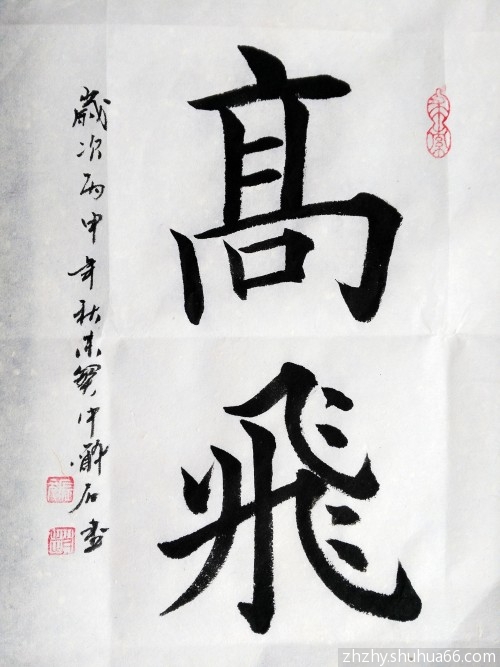 髙飛
歲次丙申年秋末贺中醉石书
zhzhyshuhua66.com